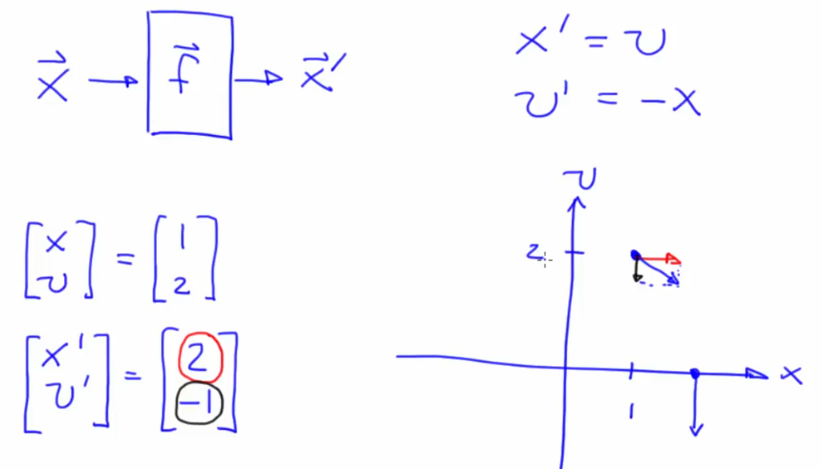 x⃗ → f⃗ → x⃗′
x′ = v
v′ = −x
[x v] = [1 2]
[x′ v′] = [2 −1]
v
2
x
1